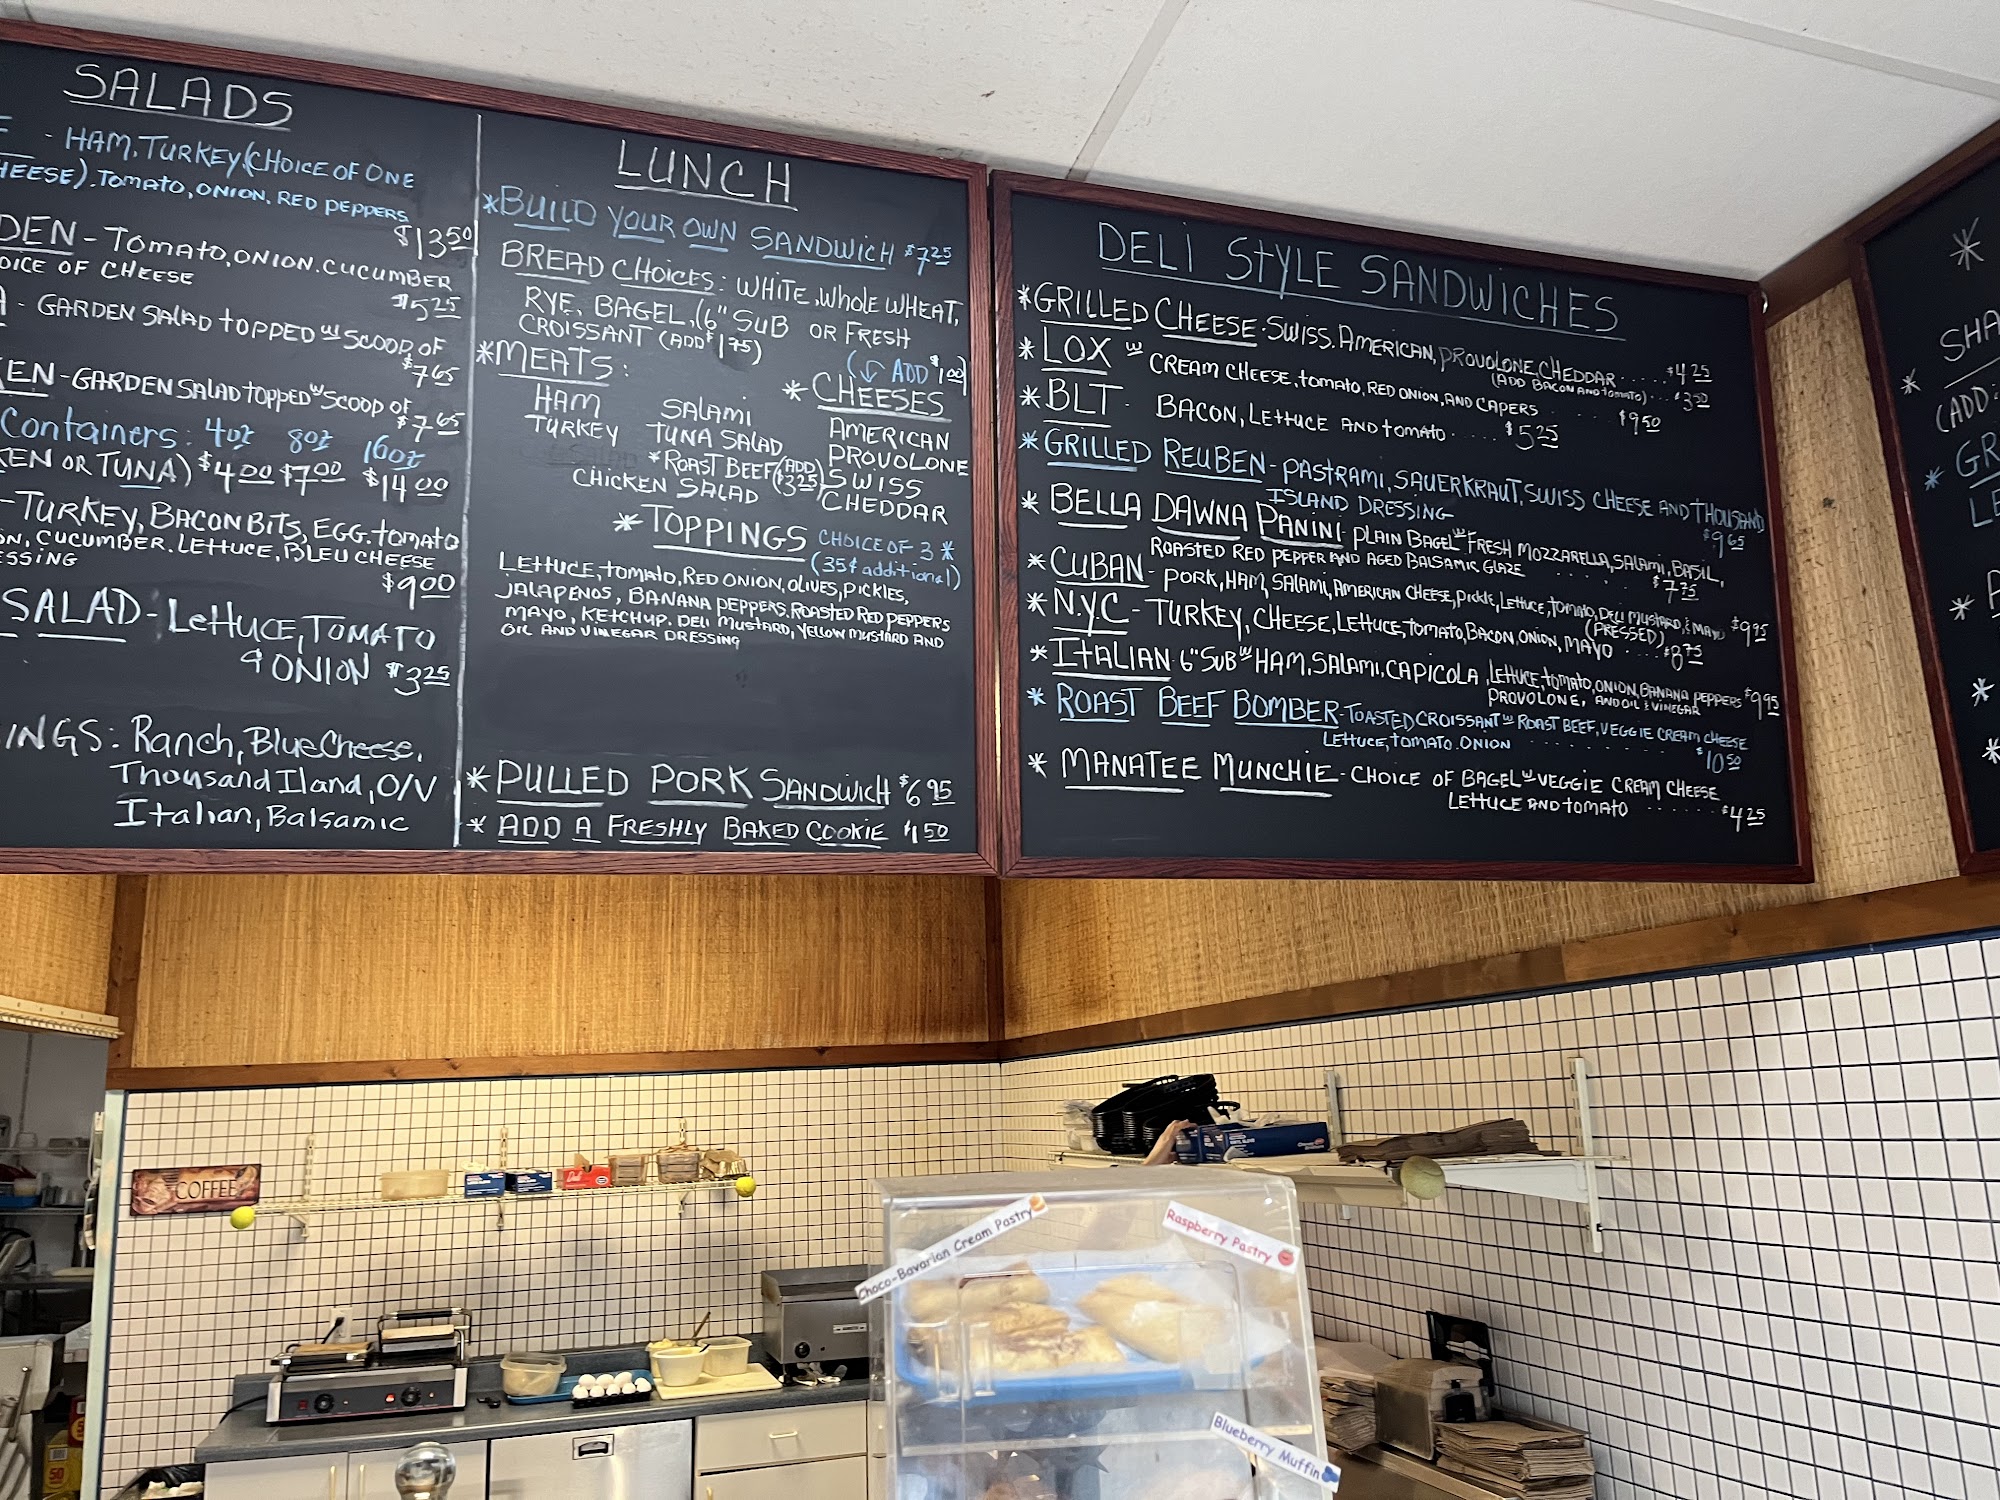 SALADS
- HAM, TURKEY, (CHOICE OF ONE
HEESE), TOMATO, ONION, RED PEPPERS
$13.50
DEN - TOMATO, ONION, CUCUMBER
OICE OF CHEESE
$5.25
A - GARDEN SALAD TOPPED w/ SCOOP OF
$7.65
KEN - GARDEN SALAD TOPPED w/ SCOOP OF
$7.65
Containers: 4oz 8oz 16oz
KEN OR TUNA) $4.00 $7.00 $14.00
- TURKEY, BACON BITS, EGG, TOMATO
ON, CUCUMBER, LETTUCE, BLEU CHEESE
SSING
$9.00
SALAD - LETTUCE, TOMATO
& ONION $3.25
INGS: Ranch, Blue Cheese,
Thousand Iland, O/V
Italian, Balsamic
LUNCH
*BUILD YOUR OWN SANDWICH $7.25
BREAD CHOICES: WHITE, WHOLE WHEAT,
RYE, BAGEL, (6" SUB OR FRESH
CROISSANT (ADD $1.75)
*MEATS:
HAM SALAMI
TURKEY TUNA SALAD
*ROAST BEEF (ADD $3.25)
CHICKEN SALAD
(↓ ADD $1.00)
* CHEESES
AMERICAN
PROVOLONE
SWISS
CHEDDAR
*TOPPINGS CHOICE OF 3 *
(35¢ additional)
LETTUCE, TOMATO, RED ONION, OLIVES, PICKLES,
JALAPENOS, BANANA PEPPERS, ROASTED RED PEPPERS
MAYO, KETCHUP, DELI MUSTARD, YELLOW MUSTARD AND
OIL AND VINEGAR DRESSING
* PULLED PORK SANDWICH $6.95
* ADD A FRESHLY BAKED COOKIE $1.50
DELI STYLE SANDWICHES
*GRILLED CHEESE - SWISS, AMERICAN, PROVOLONE, CHEDDAR ..... $4.25
(ADD BACON AND TOMATO) ... $3.50
* LOX w/ CREAM CHEESE, TOMATO, RED ONION, AND CAPERS ..... $9.50
* BLT - BACON, LETTUCE AND TOMATO ..... $5.25
* GRILLED REUBEN - PASTRAMI, SAUERKRAUT, SWISS CHEESE AND THOUSAND
ISLAND DRESSING $9.65
* BELLA DAWNA PANINI - PLAIN BAGEL w/ FRESH MOZZARELLA, SALAMI, BASIL,
ROASTED RED PEPPER AND AGED BALSAMIC GLAZE ..... $7.75
* CUBAN - PORK, HAM, SALAMI, AMERICAN CHEESE, PICKLE, LETTUCE, TOMATO, DELI MUSTARD, & MAYO $9.95
(PRESSED)
* N.Y.C - TURKEY, CHEESE, LETTUCE, TOMATO, BACON, ONION, MAYO .... $8.75
* ITALIAN - 6" SUB w/ HAM, SALAMI, CAPICOLA, LETTUCE, TOMATO, ONION, BANANA PEPPERS $9.95
PROVOLONE, AND OIL & VINEGAR
* ROAST BEEF BOMBER - TOASTED CROISSANT w/ ROAST BEEF, VEGGIE CREAM CHEESE
LETTUCE, TOMATO, ONION ..... $10.50
* MANATEE MUNCHIE - CHOICE OF BAGEL w/ VEGGIE CREAM CHEESE
LETTUCE AND TOMATO ...... $4.25
*
SHA
*
(ADD
* GR
LE
*
*
*
COFFEE
Choco-Bavarian Cream Pastry
Raspberry Pastry
Blueberry Muffin
50